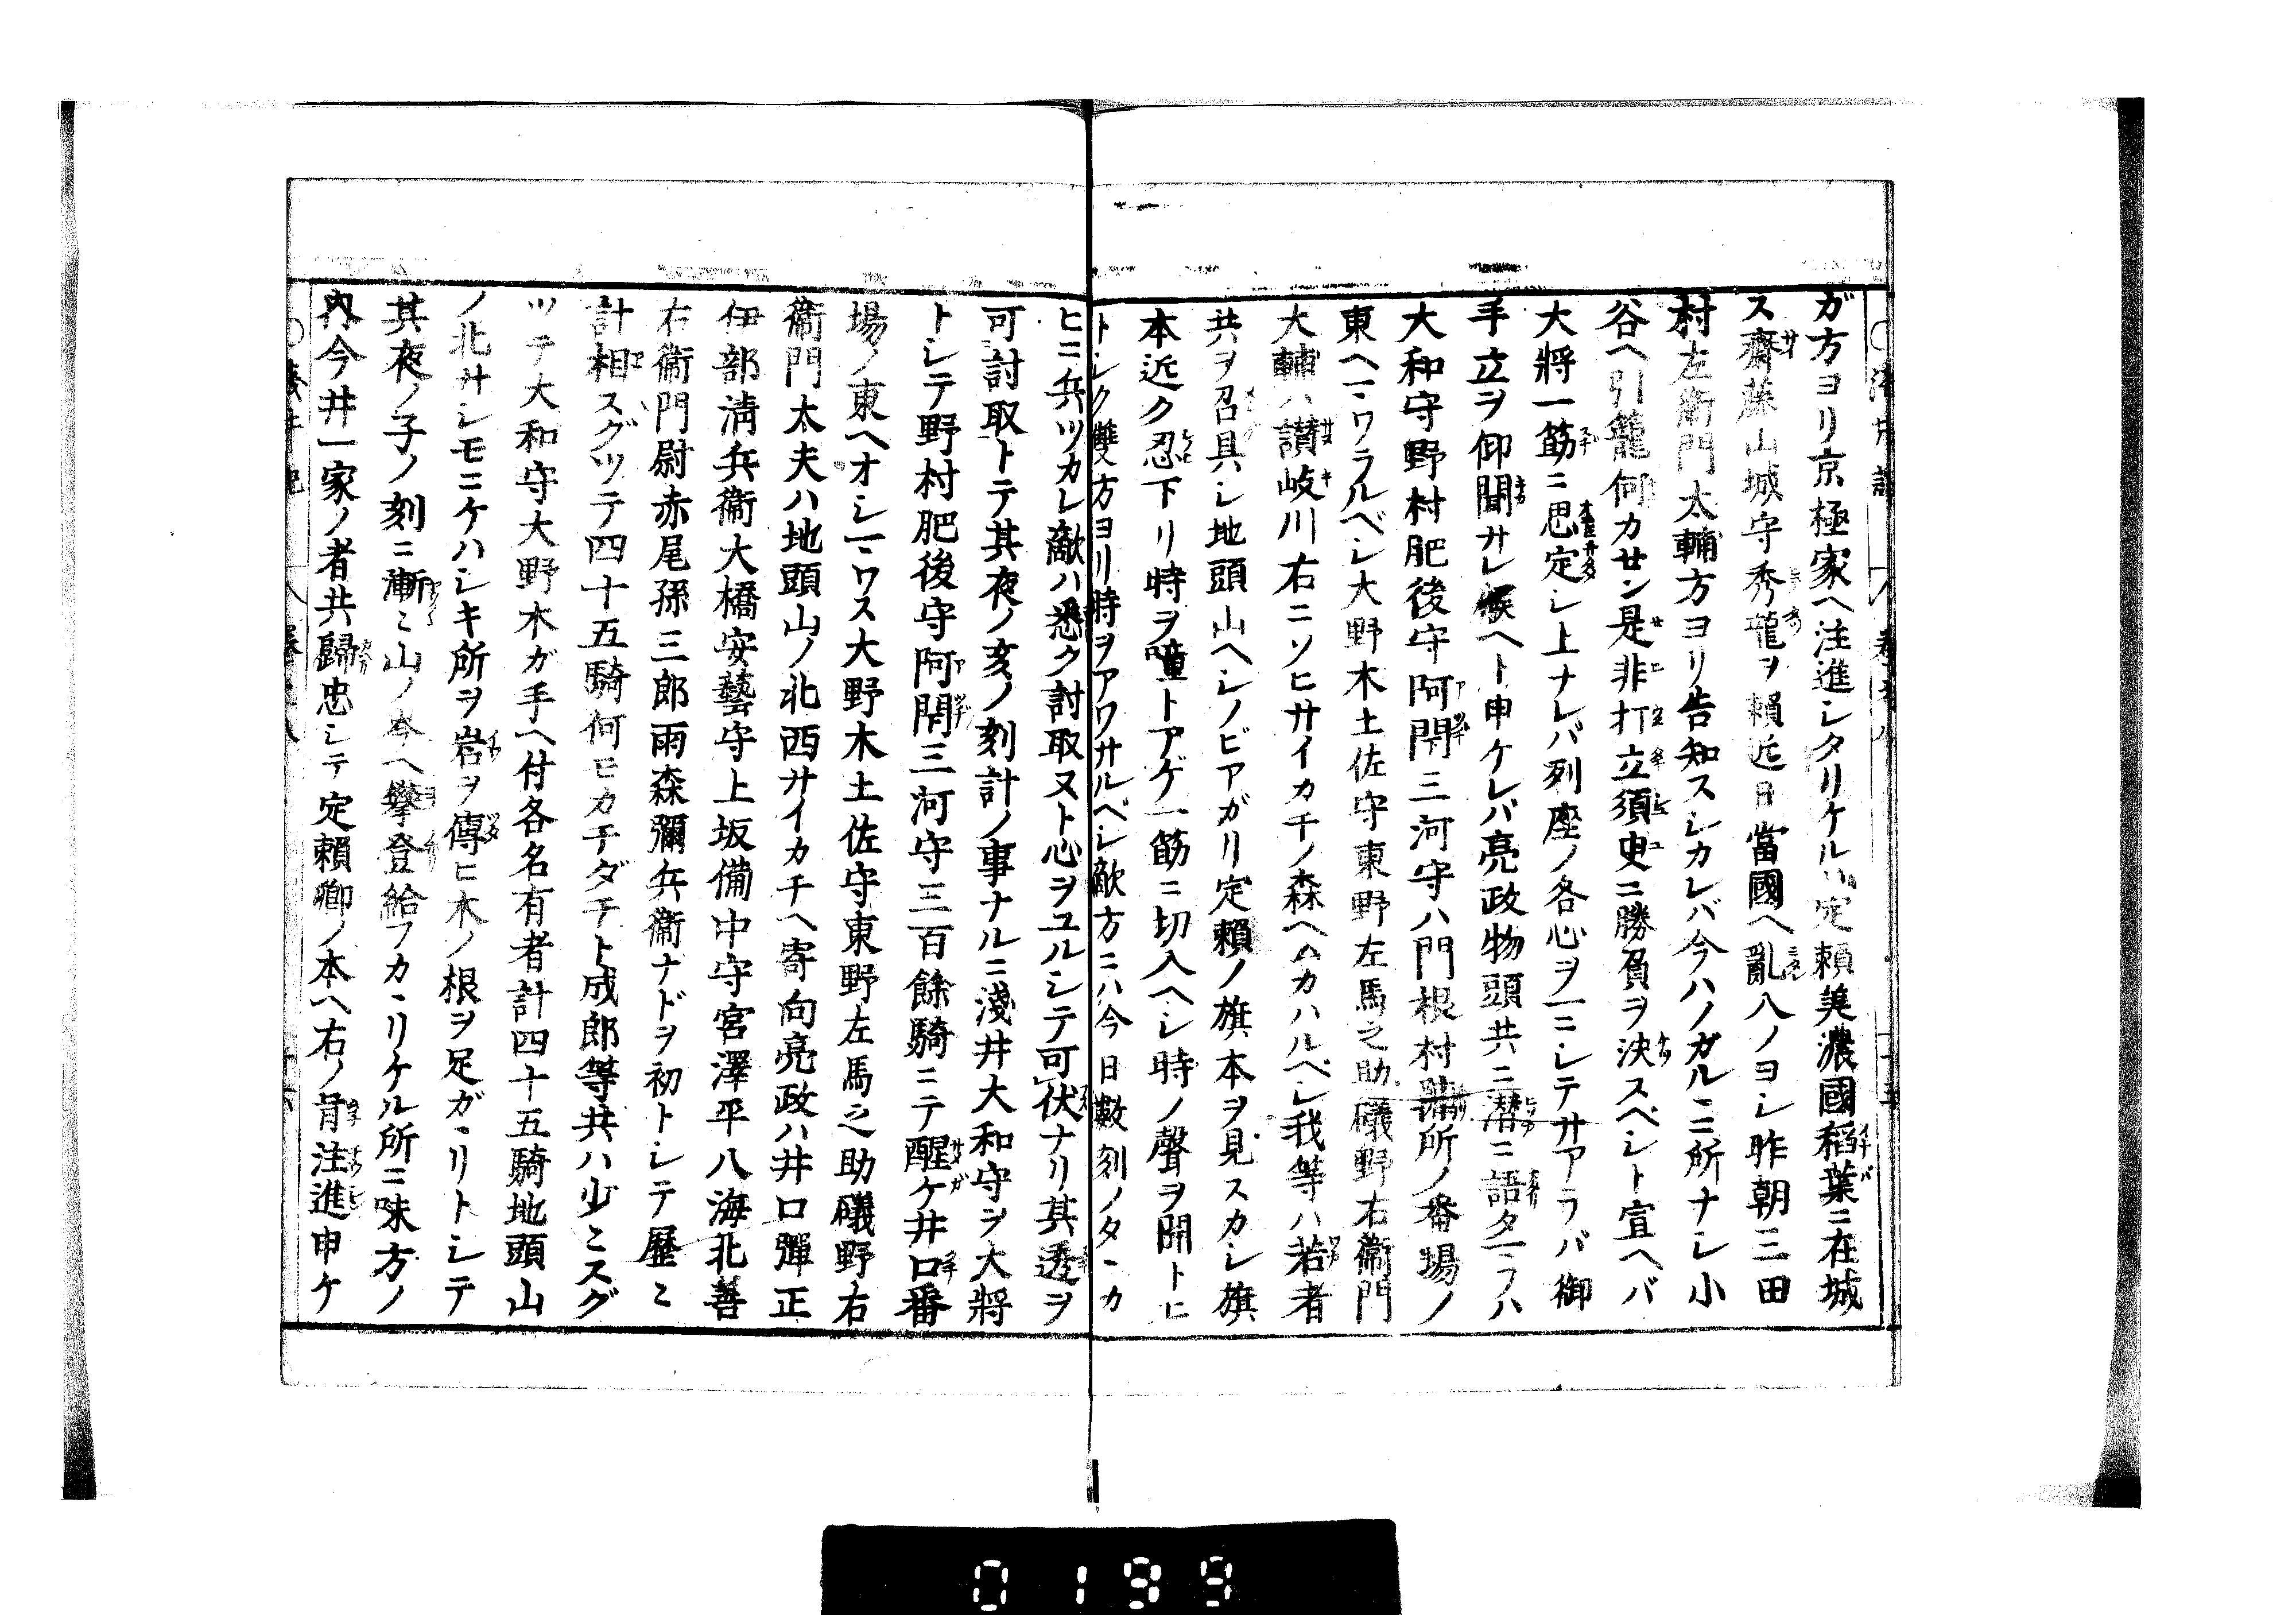 ガ方ヨリ京極家ヘ注進シタリケルハ定頼美濃國稻葉ニ在城
ス齋藤山城守秀龍ヲ頼近日當國ヘ亂入ノヨシ昨朝三田
村左衞門太輔方ヨリ告知スシカレバ今ハノガルヽニ所ナシ小
谷ヘ引籠何カセン是非打立須臾ニ勝負ヲ決スベシト宣ヘバ
大將一筋ニ思定シ上ナレバ列座ノ各心ヲ一ニシテサアラバ御
手立ヲ仰聞サレ候ヘト申ケレバ亮政物頭共ニ潜ニ語タマフハ
大和守野村肥後守阿閉三河守ハ門根村 所ノ番場ノ
東ヘマワラルベシ大野木土佐守東野左馬之助礒野右衞門
大輔ハ讃岐川右ニソヒサイカチノ森ヘムカハルベシ我等ハ若者
共ヲ召具シ地頭山ヘシノビアガリ定頼ノ旗本ヲ見スカシ旗
本近ク忍下リ時ヲ噇トアゲ一筋ニ切入ヘシ時ノ聲ヲ聞トヒ
トシク雙方ヨリ時ヲアワサルベシ敵方ニハ今日數刻ノタヽカ
ヒニ兵ツカレ敵ハ悉ク討取ヌト心ヲユルシテ可伏ナリ其透ヲ
可討取トテ其夜ノ亥ノ刻計ノ事ナルニ淺井大和守ヲ大將
トシテ野村肥後守阿閉三河守三百餘騎ニテ醒ケ井口番
場ノ東ヘオシマワス大野木土佐守東野左馬之助礒野右
衞門太夫ハ地頭山ノ北西サイカチヘ寄向亮政ハ井口彈正
伊部淸兵衞大橋安藝守上坂備中守宮澤平八海北善
右衞門尉赤尾孫三郎雨森彌兵衞ナドヲ初トシテ歷ミ
計相スグツテ四十五騎何モカチダチト成郎等共ハ少ミスグ
ツテ大和守大野木ガ手ヘ付各名有者計四十五騎地頭山
ノ北サシモニケハシキ所ヲ岩ヲ傳ヒ木ノ根ヲ足ガヽリトシテ
其夜ノ子ノ刻ニ漸ミ山ノ半ヘ攀登給フカヽリケル所ニ味方ノ
內今井一家ノ者共歸忠シテ定頼卿ノ本ヘ右ノ旨注進申ケ
0199